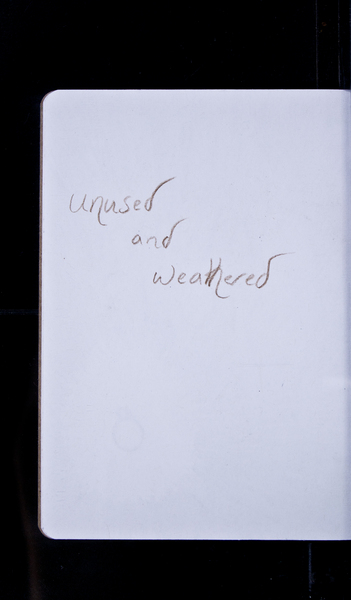 Unused
and
weathered